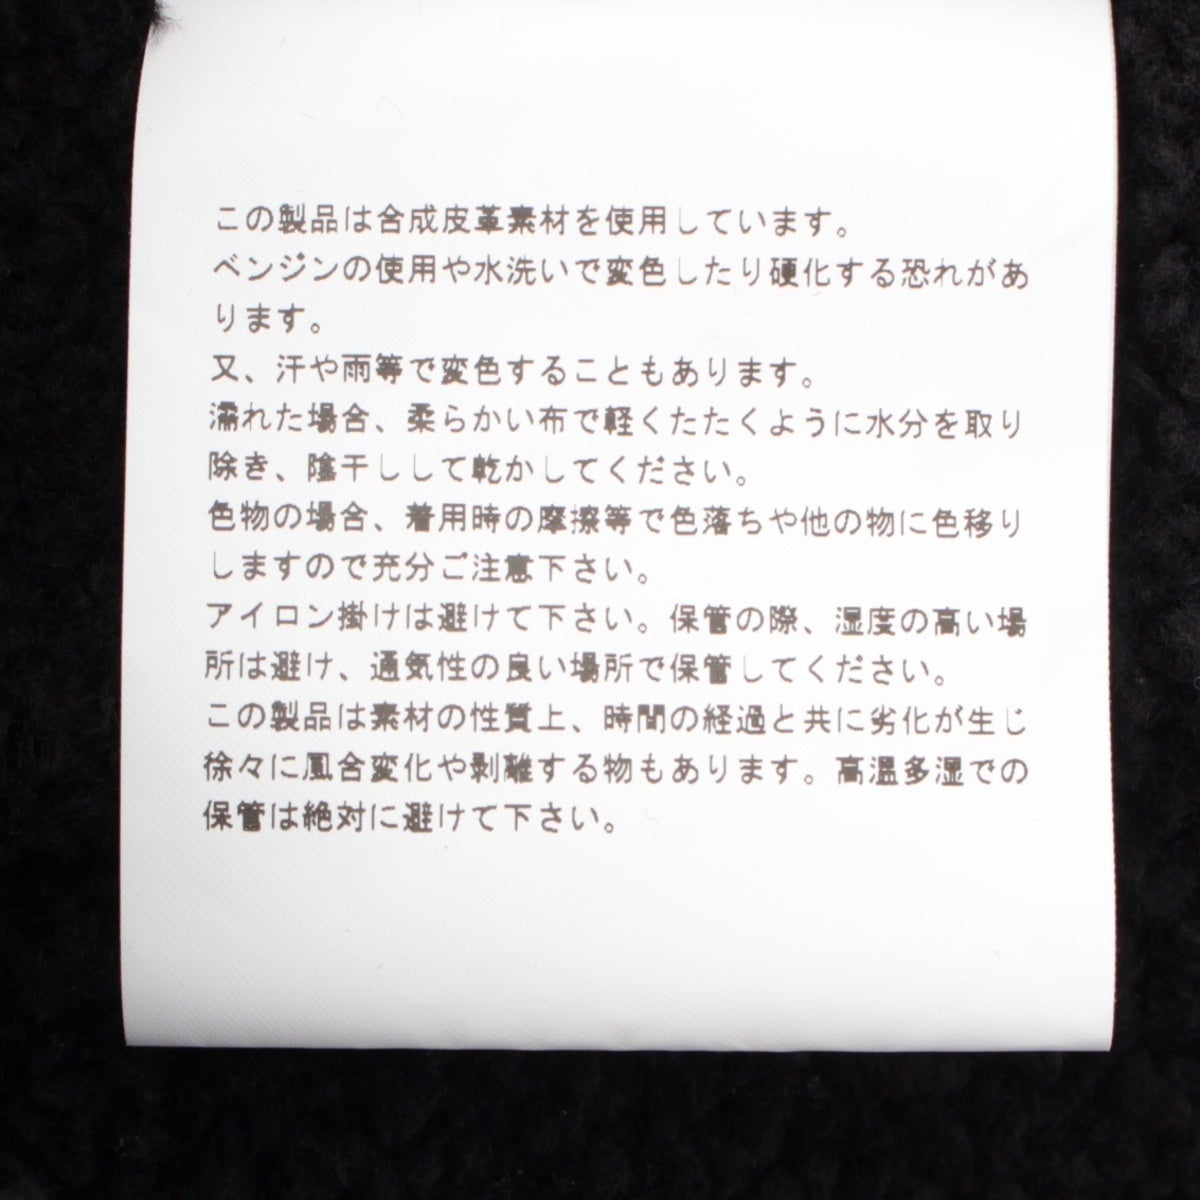 この製品は合成皮革素材を使用しています。
ベンジンの使用や水洗いで変色したり硬化する恐れがあ
ります。
又、汗や雨等で変色することもあります。
濡れた場合、柔らかい布で軽くたたくように水分を取り
除き、陰干しして乾かしてください。
色物の場合、着用時の摩擦等で色落ちや他の物に色移り
しますので充分ご注意下さい。
アイロン掛けは避けて下さい。保管の際、湿度の高い場
所は避け、通気性の良い場所で保管してください。
この製品は素材の性質上、時間の経過と共に劣化が生じ
徐々に風合変化や剥離する物もあります。高温多湿での
保管は絶対に避けて下さい。